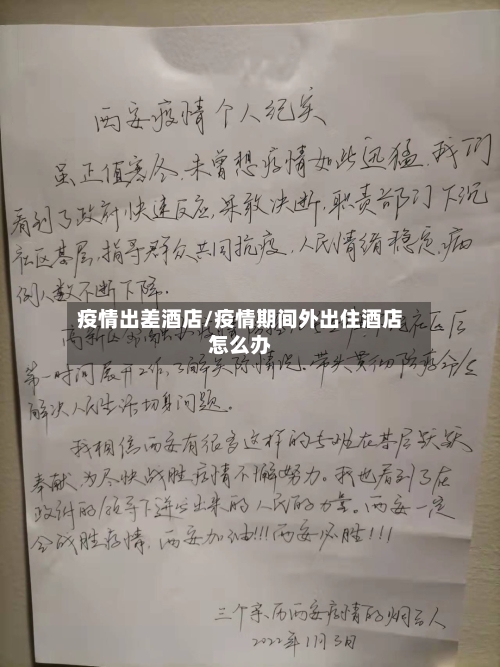 西安疫情个人纪实
虽正值寒冬,未曾想疫情如此迅猛,我们
看到了政府快速反应,果敢决断,职责部门下沉
社区基层,指导群众共同抗疫,人民情绪稳定,病
例人数不断下降。
疫情出差酒店/疫情期间外出住酒店
怎么办
高新区
社区后
第一时间展开工作,了解实际情况。带头贯彻防疫
解决人民生活切身问题。
我相信西安有很多这样的专班在基层默默
奉献,为尽快战胜疫情不懈努力。我也看到了在
政府的领导下迸发出来的人民的力量。西安一定
会战胜疫情,西安加油!!!西安必胜!!!
三个亲历西安疫情的烟台人
2022年1月3日